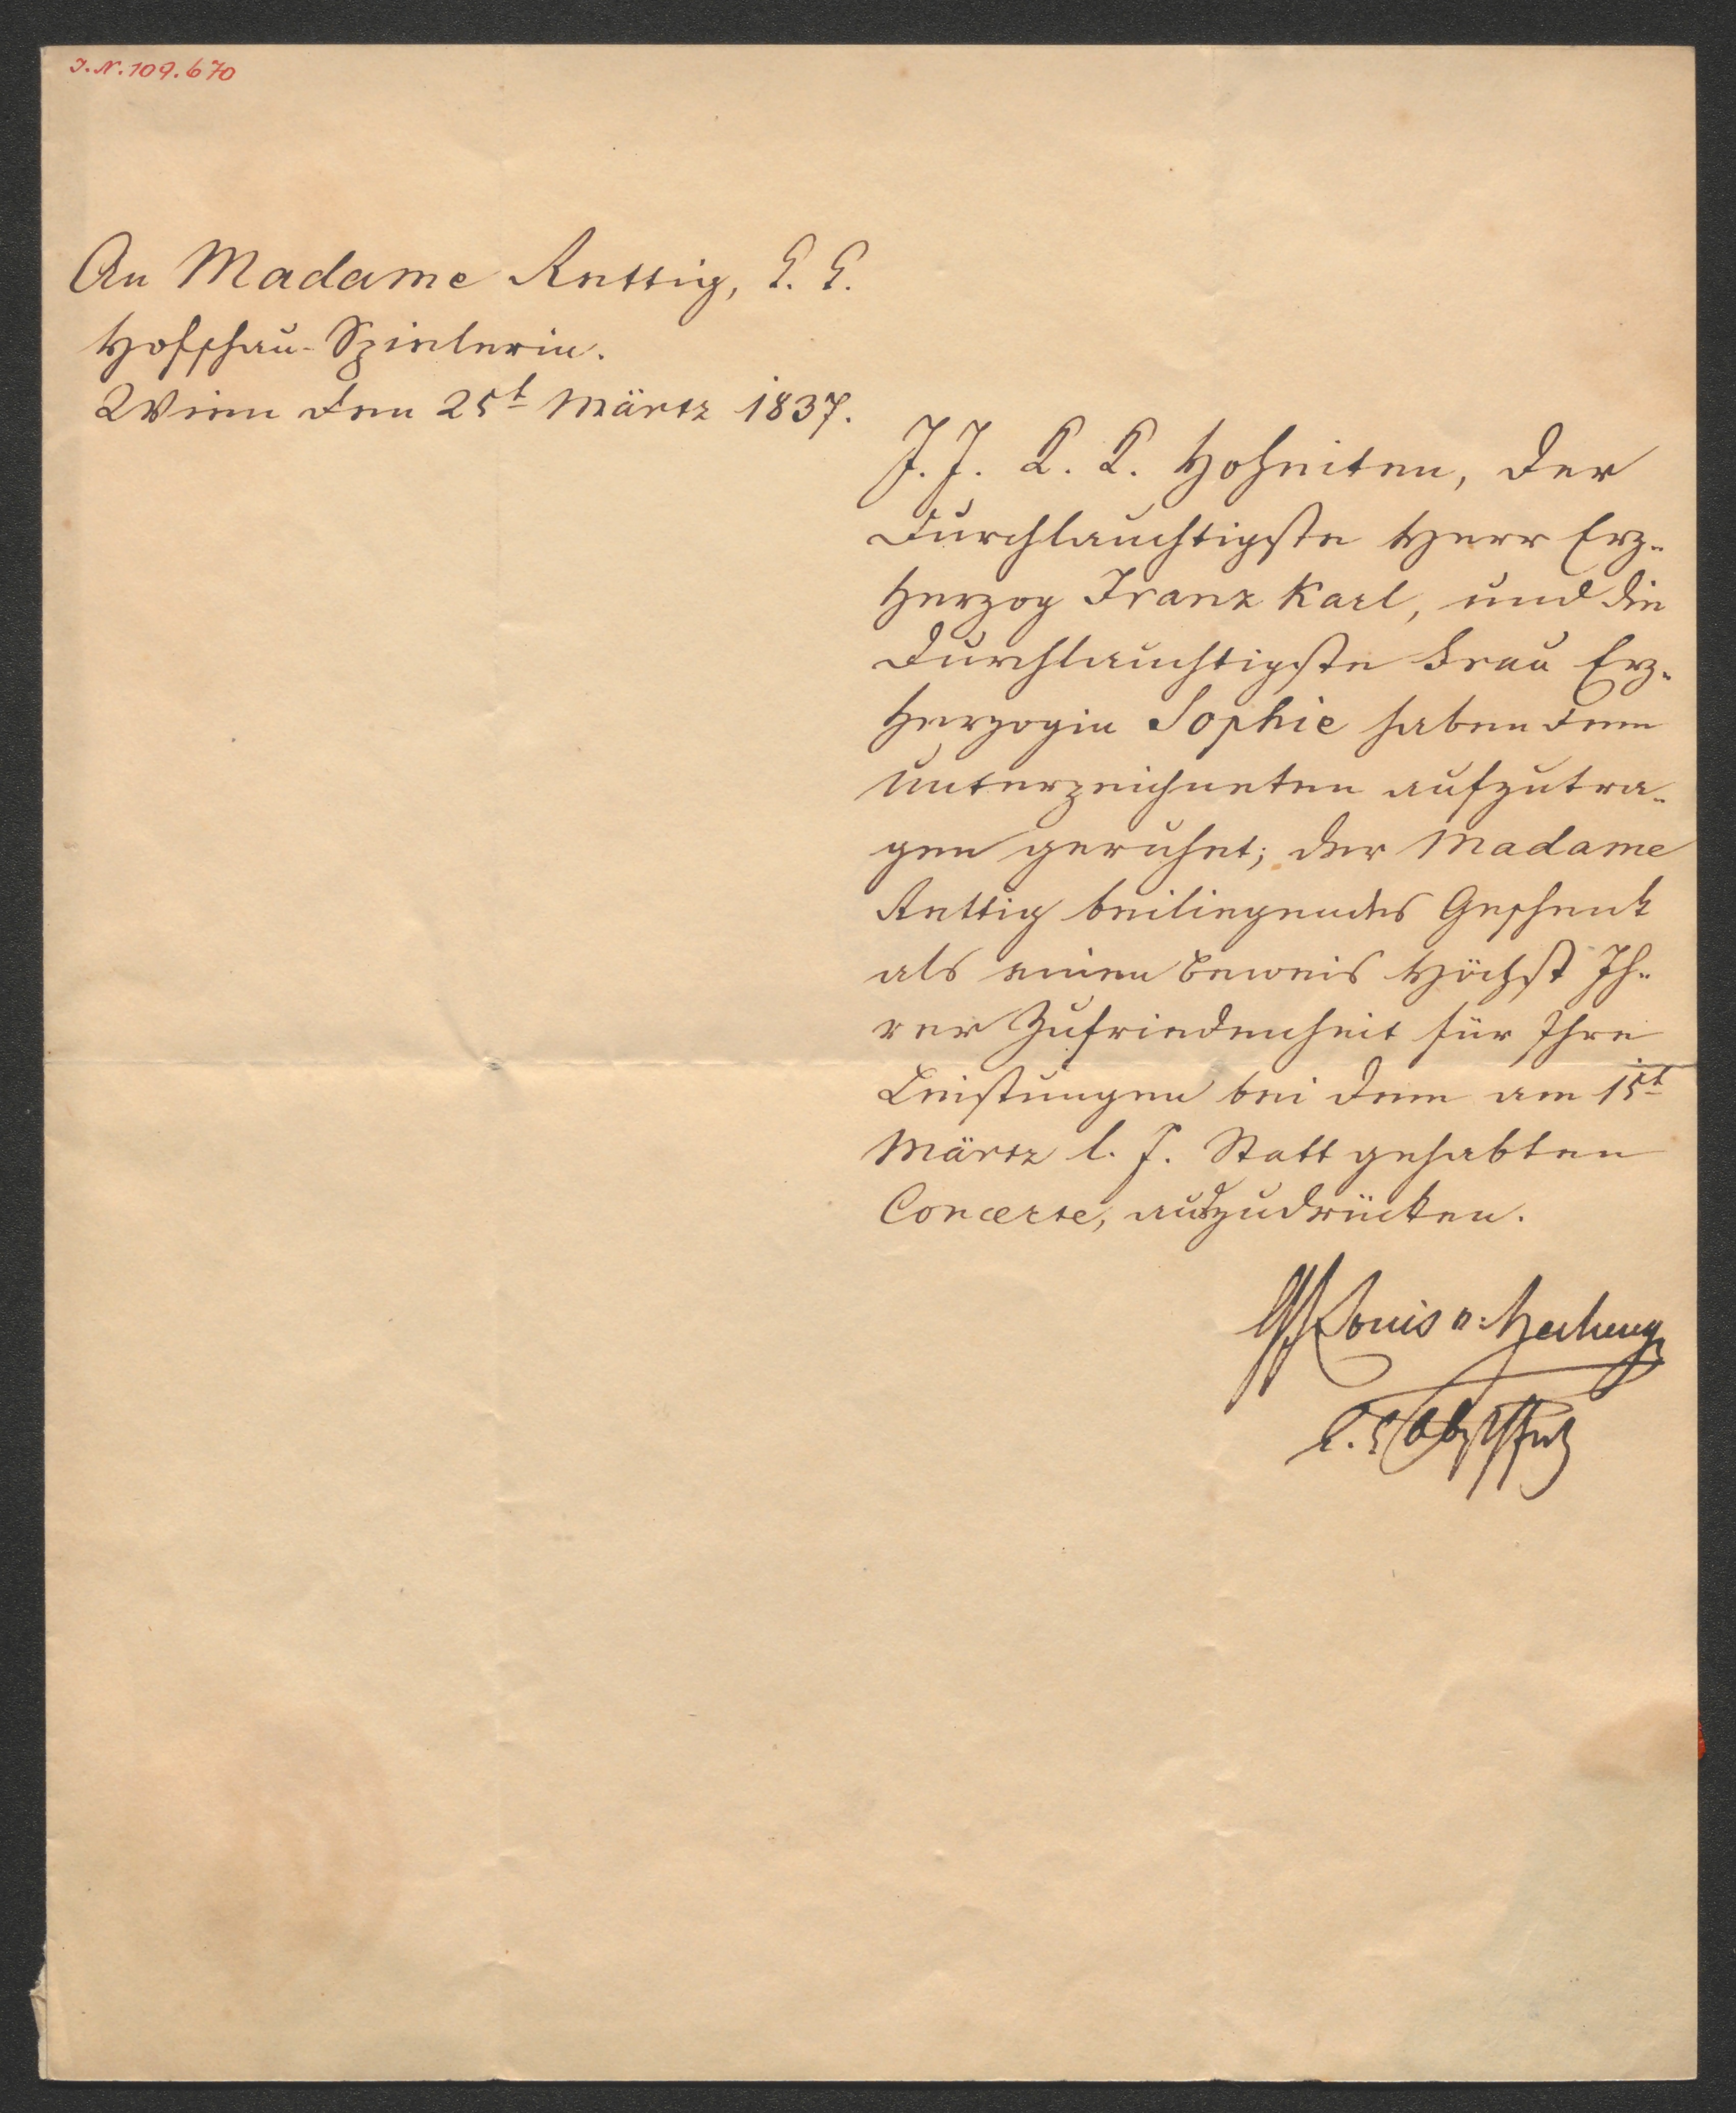 I.N.109.670
An Madame Rettig, k. k.
Hofschau-Spielerin.
Wien den 25t Märtz 1837.
J. J. K. K. Hoheiten, der
durchlauchtigste Herr Erz-
herzog Franz Karl, und die
durchlauchtigste Frau Erz-
herzogin Sophie haben dem
Unterzeichneten aufzutra-
gen geruhet; der Madame
Rettig beiliegendes Geschenk
als einen Beweis Höchst Ih-
rer Zufriedenheit für Ihre
Leistungen bei dem am 15t
Märtz l. J. Statt gehabten
Concerte, auszudrücken.
Louis v:
k. k.